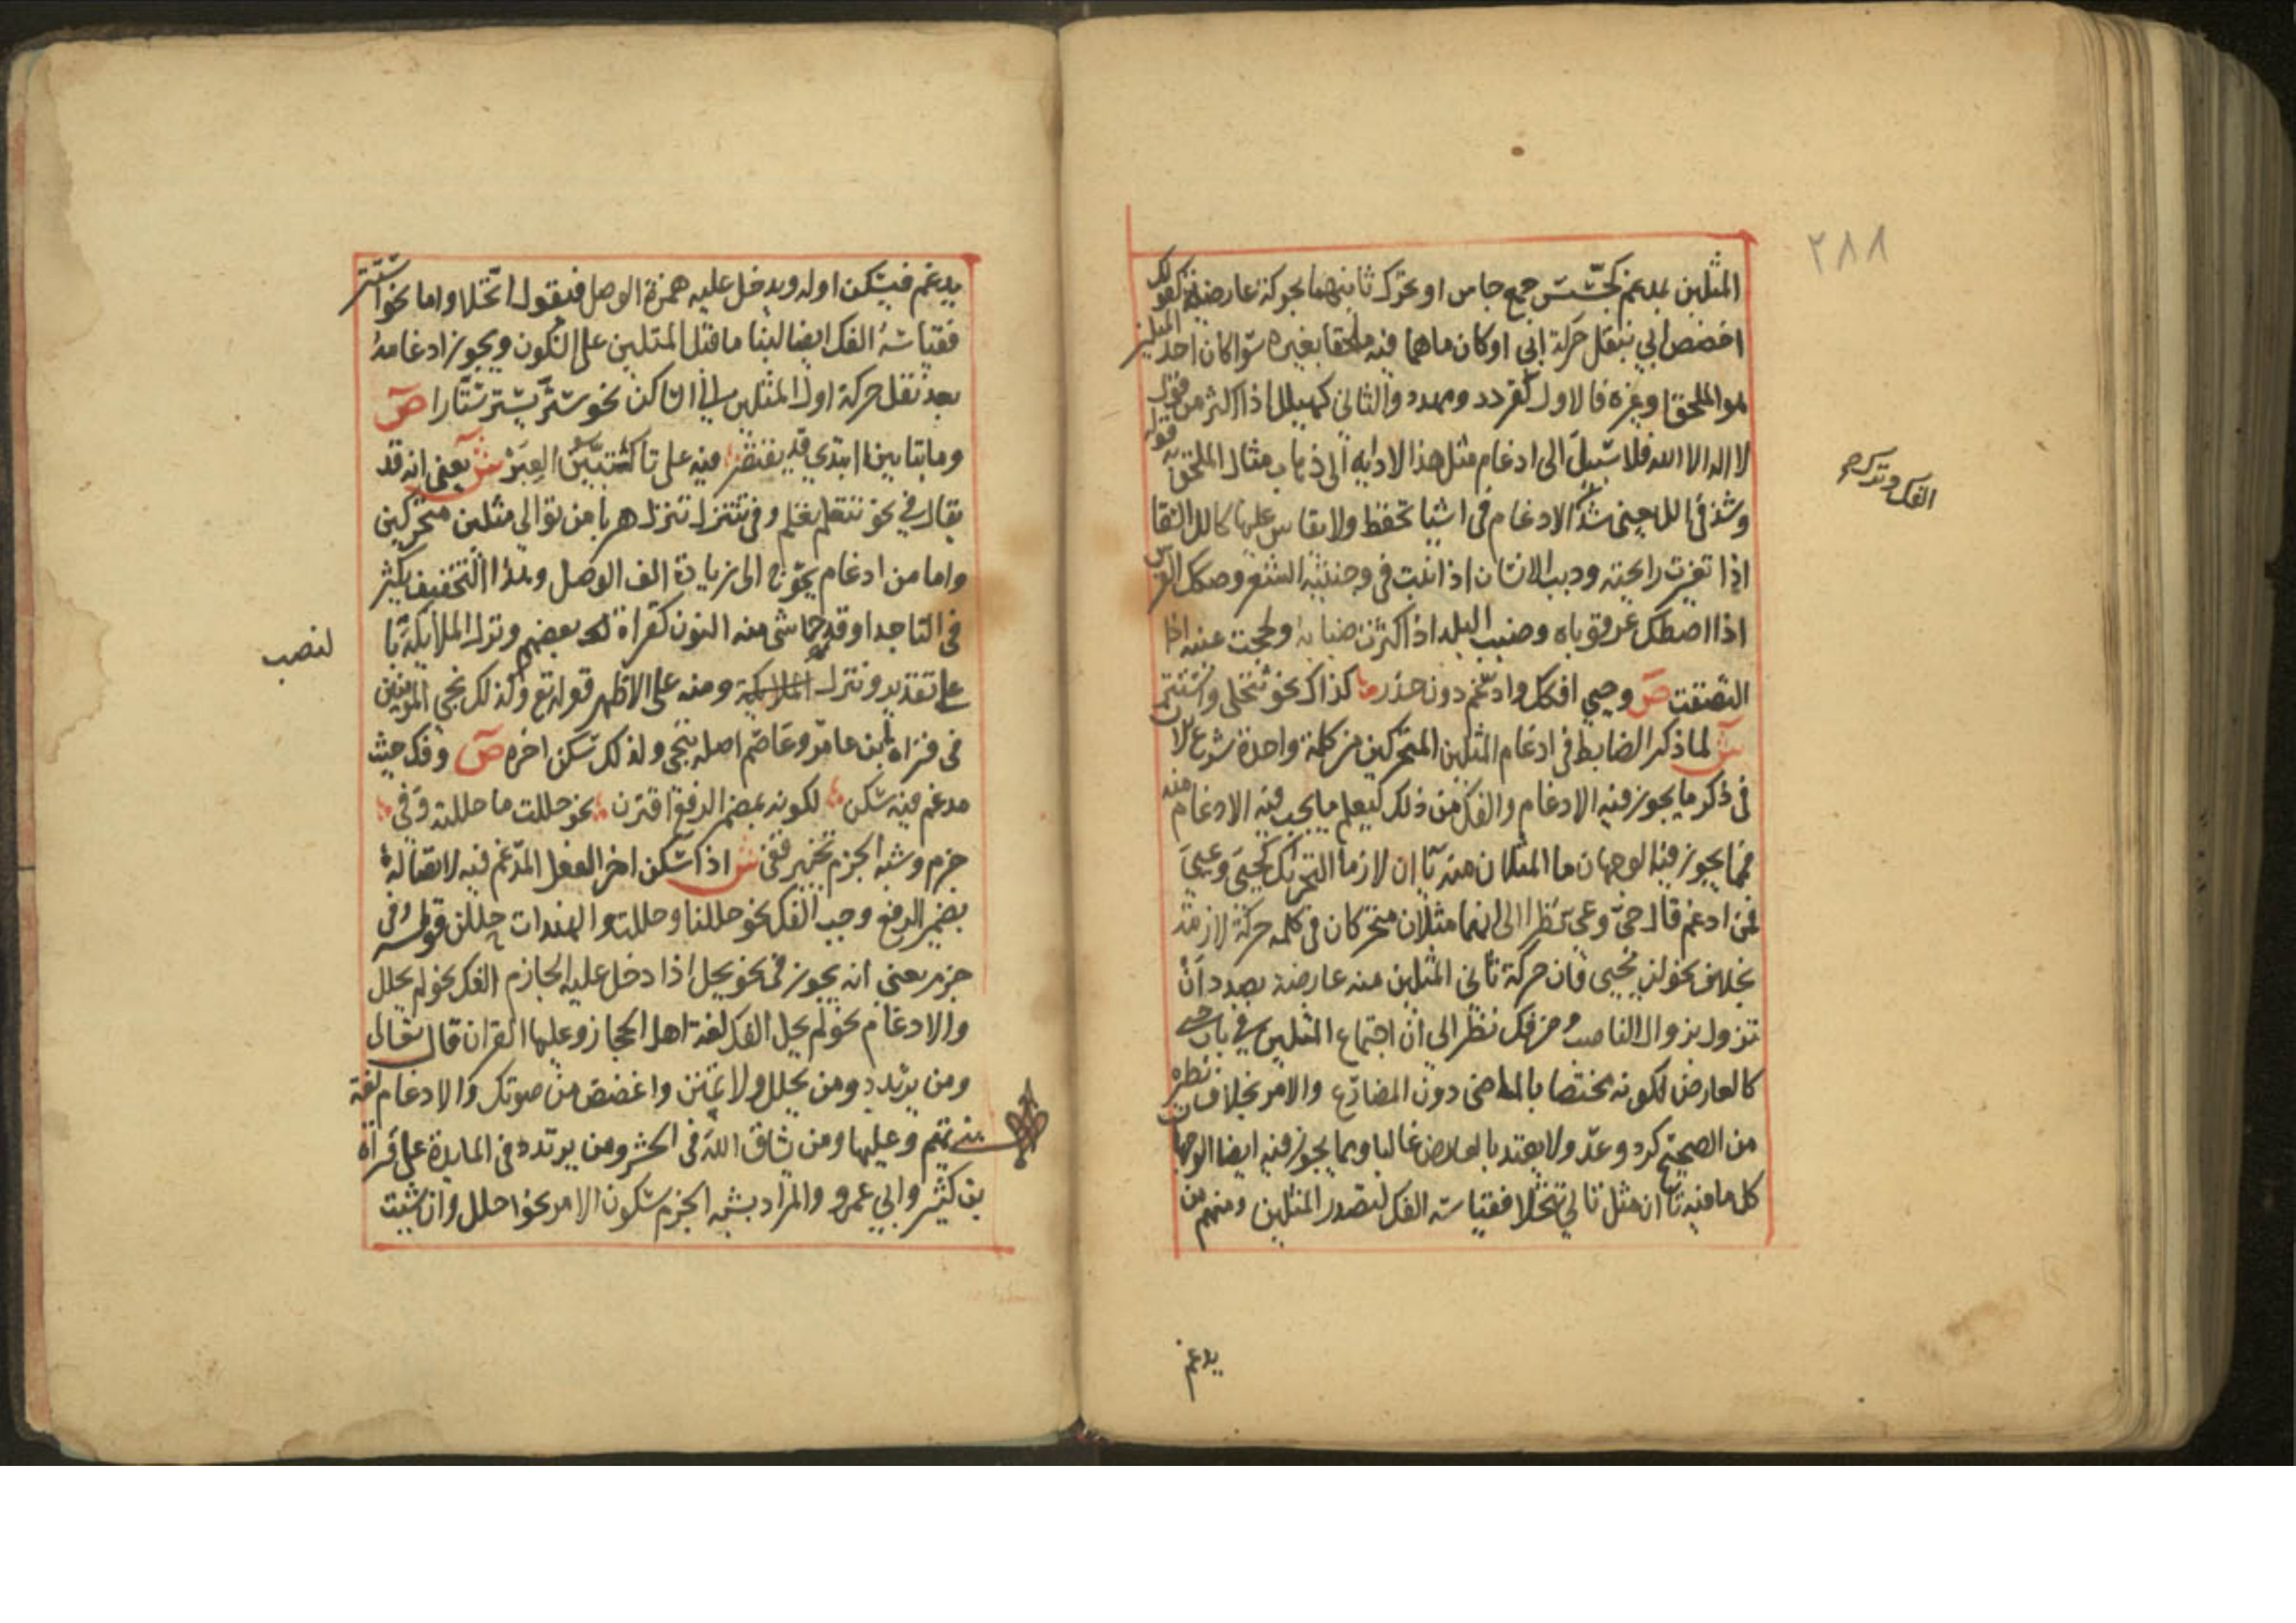 ٢٨٨
المثلين بمدغم كجسس جمع جاس او تحرك ثانيهما بحركة عارضة كقولك
اخصص ابي بنقل حركة ابي او كان ما هما فيه ملحقا بغيره سوا كان احد المثلين
هو الملحق او غيره فالاول كقردد ومهدد والثاني كهيلل اذا اكثر من قول
لا اله الا الله فلا سبيل الى ادغام مثل هذا لادايه الى ذهاب مثال الملحق به قوله
وشذ في الل يعني شذ الادغام في اشيا تحفظ ولا يقاس عليها كالل السقا
اذا تغيرت رايحته ودبب الانسان اذا نبت في وجنتيه الشعر وصكك الفرس
اذا اصطك عرقوباه وضبب البلد اذا كثرت ضبابه ولححت عينه اذا
التصقت ص وحيي افكك وادغم دون حذر كذاك نحو تتجلى واستتر
ش لما ذكر الضابط في ادغام المثلين المتحركين من كلمة واحدة شرع الان
في ذكر ما يجوز فيه الادغام والفك من ذلك ليعلم ما يجب فيه الادغام منه
فمما يجوز فيه الوجهان ما المثلان منه يآان لازما التحريك كحيي وعيي
فمن ادغم قال حي وعي نظرا الى انهما مثلان متحركان في كلمة حركة لازمة
بخلاف نحو لن يحيي فان حركة ثاني المثلين منه عارضة بصدد ان
تزول بزوال الناصب ومن فك نظر الى ان اجتماع المثلين في باب حيي
كالعارض لكونه مختصا بالماضي دون المضارع والامر بخلاف نظيره
من الصحيح كرد وعد ولا يعتد بالعارض غالبا ومما يجوز فيه ايضا الوجهان
كل ما فيه تاان مثل تاي تتجلا فقياسه الفك لتصدر المثلين ومنهم من
الفك وتدكره
يدغم
يدغم فيسكن اوله ويدخل عليه همزة الوصل فيقول اتجلا واما نحو استتر
فقياسه الفك ايضا لبنا ما قبل المثلين على السكون ويجوز ادغامه
بعد نقل حركة اول المثلين الى الساكن نحو ستر يستر ستارا ص
وما بتاين ابتدي قد يقتصر فيه على تا كتبين العبر ش يعني انه قد
يقال في نحو تتعلم تعلم وفي تتنزل تنزل هربا من توالي مثلين متحركين
واما من ادغام يحوج الى زيادة الف الوصل وهذا التخفيف يكثر
في التا جدا وقد جا شي منه النون كقراة بعضهم ونزل الملايكة تا
لنصب
على تقدير وننزل الملايكة ومنه على الاظهر قوله تع وكذلك نجي المومنين
في قراة ابن عامر وعاصم اصله ننجي ولذلك سكن اخره ص وفك حيث
مدغم فيه سكن لكونه بمضمر الرفع اقترن نحو حللت ما حللته وفي
جزم وشبه الجزم تخيير قفي ش اذا سكن اخر الفعل المدغم فيه لاتصاله
بضمير الرفع وجب الفك نحو حللنا وحللت والهندات حللن قوله وفي
جزم يعني انه يجوز في نحو يحل اذا دخل عليه الجازم الفك نحو لم يحلل
والادغام نحو لم يحل الفك لغة اهل الحجاز وعليها القران قال تعالى
ومن يرتدد ومن يحلل ولا تمنن واغضض من صوتك والادغام لغة
بني تميم وعليها ومن يشاق الله في الحشر ومن يرتدد في المايدة على قراة
بن كثير وابي عمرو والمراد بشبه الجزم سكون الامر نحو احلل وان شيت